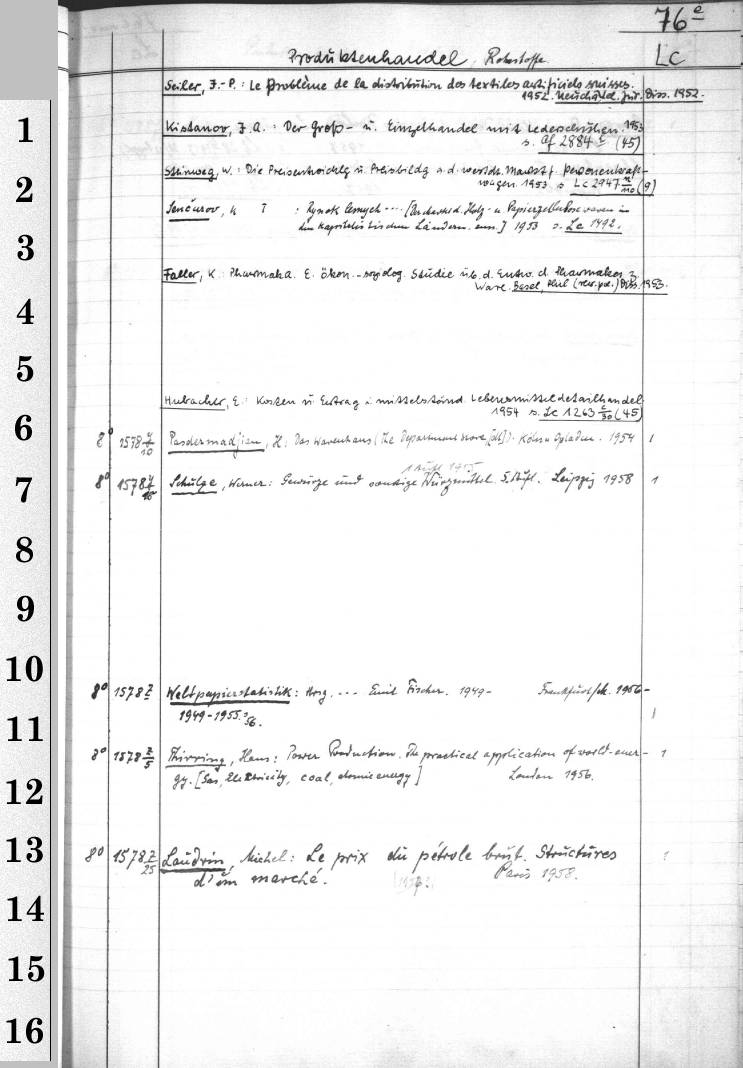 76e
Produktenhandel, Rohstoffe
Lc
Seiler, J.-P.: Le problème de la distribution des textiles artificiels suisses.
1952. Neuchâtel. jur. Diss. 1952.
Kistanov, J. A.: Der Groß- u. Einzelhandel mit Lederschuhen. 1953
s. Af 2884 c (45)
Steinweg, W.: Die Preisentwicklg u. Preisbildg a. d. westdt. Markt f. Personenkraft-
wagen. 1953 s. Lc 2947 n/110 (9)
Senčurov, K T : Rynok ---- [Der Markt d. Holz- u Papierzellulosewaren in
den kapitalistischen Ländern. russ.] 1953 s. Lc 1492.
Faller, K: Pharmaka. E. ökon.-soziolog. Studie üb. d. Entw. d. Pharmakons z.
Ware. Basel, Phil (rer. pol.) Diss. 1953.
Hubacher, E: Kosten u. Ertrag i. mittelständ. Lebensmitteldetailhandel
1954 s. Lc 1263 c/30 (45)
8° 1578 y/10 Pasdermadjian, H: Das Warenhaus (The Department store [dt]). Köln u Opladen. 1954 1
1 Aufl 1955
8° 1578 y/16 Schulze, Werner: Gewürze und sonstige Würzmittel. 5. Aufl. Leipzig 1958 1
8° 1578 z Weltpapierstatistik: Hrsg. --- Emil Fischer. 1949- Frankfurt/M. 1956-
1949-1955. 56. 1
8° 1578 z/5 Thirring, Hans: Power Production. The practical application of world-ener- 1
gy. [Gas, Elektricity, coal, atomic energy] London 1956.
8° 1578 z/25 Laudrin, Michel: Le prix du pétrole brut. Structures 1
d'un marché. Paris 1958.
1
2
3
4
5
6
7
8
9
10
11
12
13
14
15
16